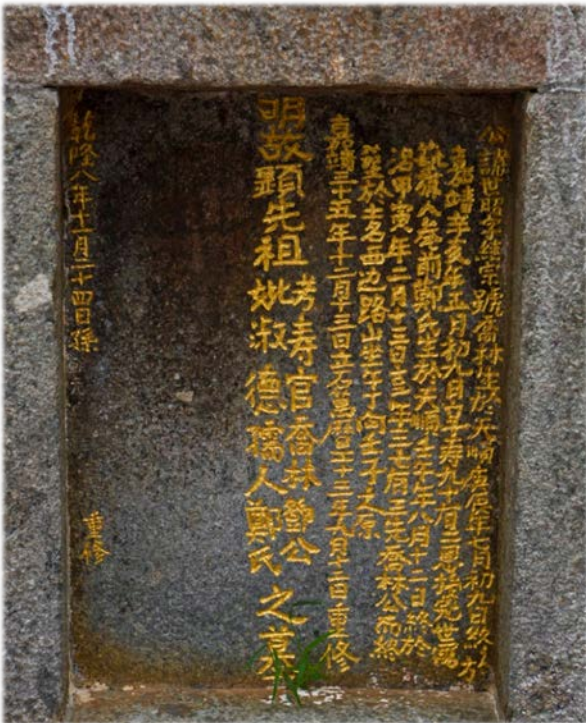 公諱世昭字繼宗號喬林生於天順庚辰年七月初九日終於
嘉靖辛亥年正月初九日享壽九十有二恩授冠世
人李前鄭氏生於天順壬午年八月十二日終於
甲寅年二月十三日享年三先喬林公而終
葬於土名西边路山坐午向壬子之原
嘉靖三十五年十二月十三日立石萬曆二十三年八月十二日重修
明故顯先祖考寿官喬林鄧公
妣淑德孺人鄭氏之墓
乾隆八年十二月二十四日孫
重修